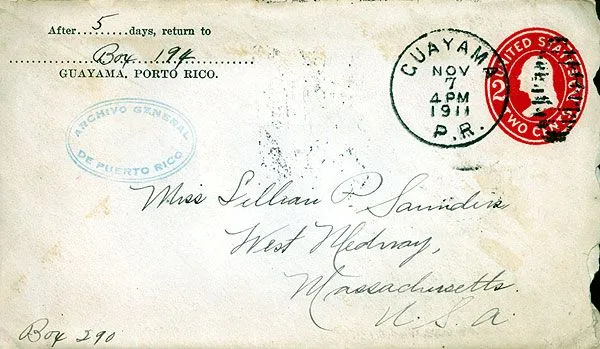 After.....5.....days, return to
Box 194
GUAYAMA, PORTO RICO.
GUAYAMA
NOV
7
4 PM
1911
P.R.
UNITED STATES
2
TWO CENTS
ARCHIVO GENERAL
DE PUERTO RICO
Miss Lillian P. Saunders
West Medway,
Massachusetts.
U. S. A.
Box 290